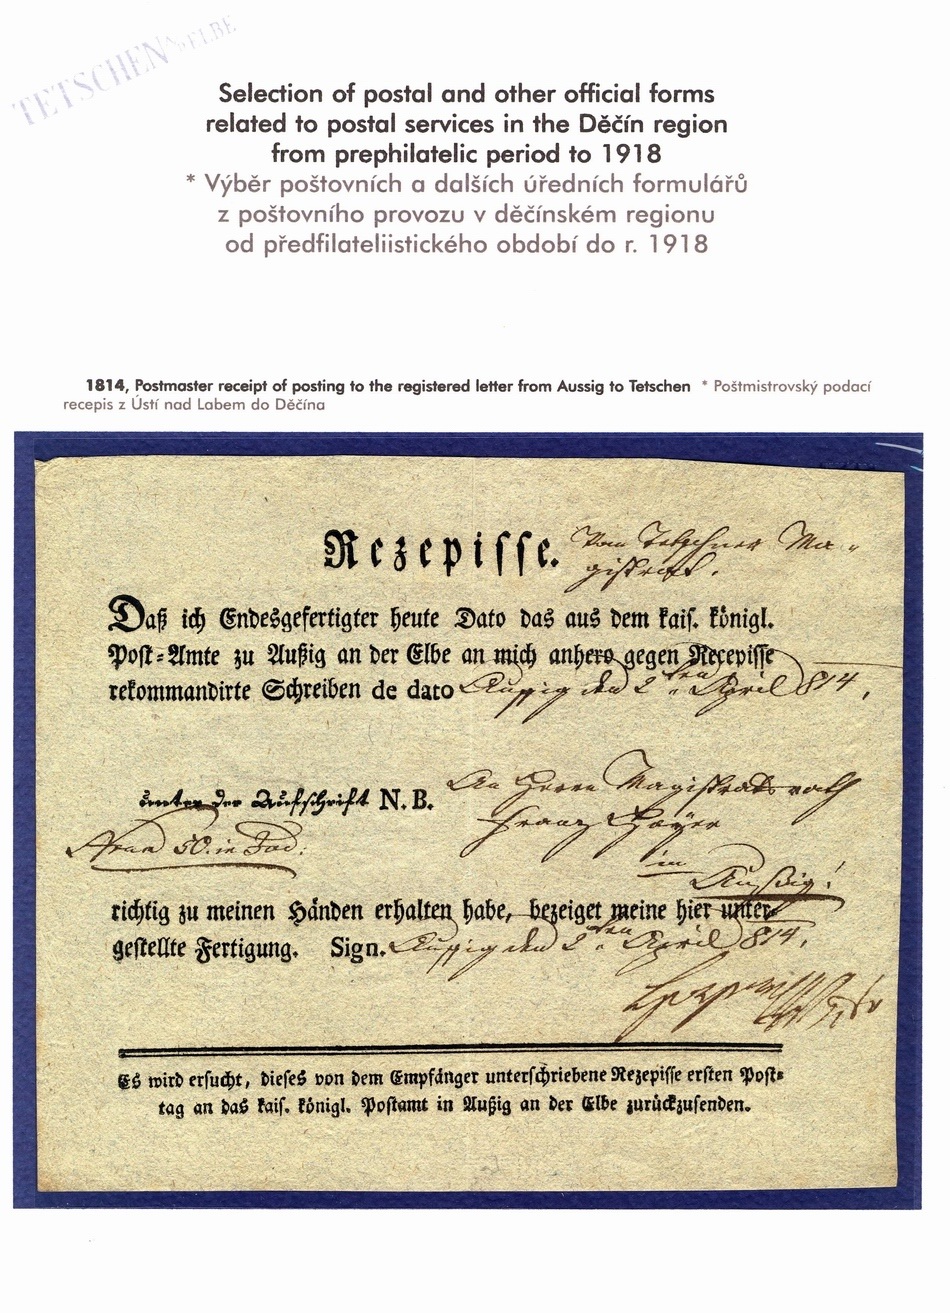 TETSCHEN a/ELBE
Selection of postal and other official forms
related to postal services in the Děčín region
from prephilatelic period to 1918
* Výběr poštovních a dalších úředních formulářů
z poštovního provozu v děčínském regionu
od předfilateliistického období do r. 1918
1814, Postmaster receipt of posting to the registered letter from Aussig to Tetschen * Poštmistrovský podací
recepis z Ústí nad Labem do Děčína
Rezepisse. Vom Tetschner Ma-
gistrat.
Daß ich Endesgefertigter heute Dato das aus dem kais. königl.
Post-Amte zu Außig an der Elbe an mich anhero gegen Recepisse
rekommandirte Schreiben de dato Aussig den 2ten April 814.
An Herrn Magistratsrath
unter der Aufschrift N. B.
Franz
50. in
im
Außig!
richtig zu meinen Händen erhalten habe, bezeiget meine hier unter-
gestellte Fertigung. Sign. Aussig den 2ten April 814.
Es wird ersucht, dieses von dem Empfänger unterschriebene Rezepisse ersten Post-
tag an das kais. königl. Postamt in Außig an der Elbe zurückzusenden.